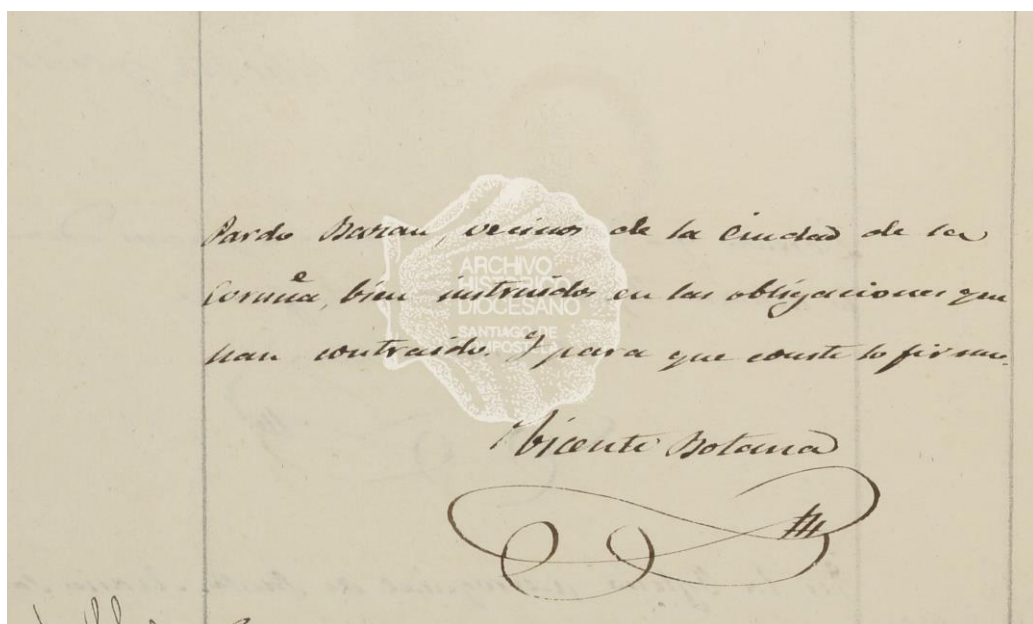 Pardo Bazan, vecinos de la Ciudad de la
Coruña, bien instruidos en las obligaciones que
han contraido. Y para que conste lo firmo.
ARCHIVO
HISTÓRICO
DIOCESANO
SANTIAGO DE
COMPOSTELA
Vicente Botana